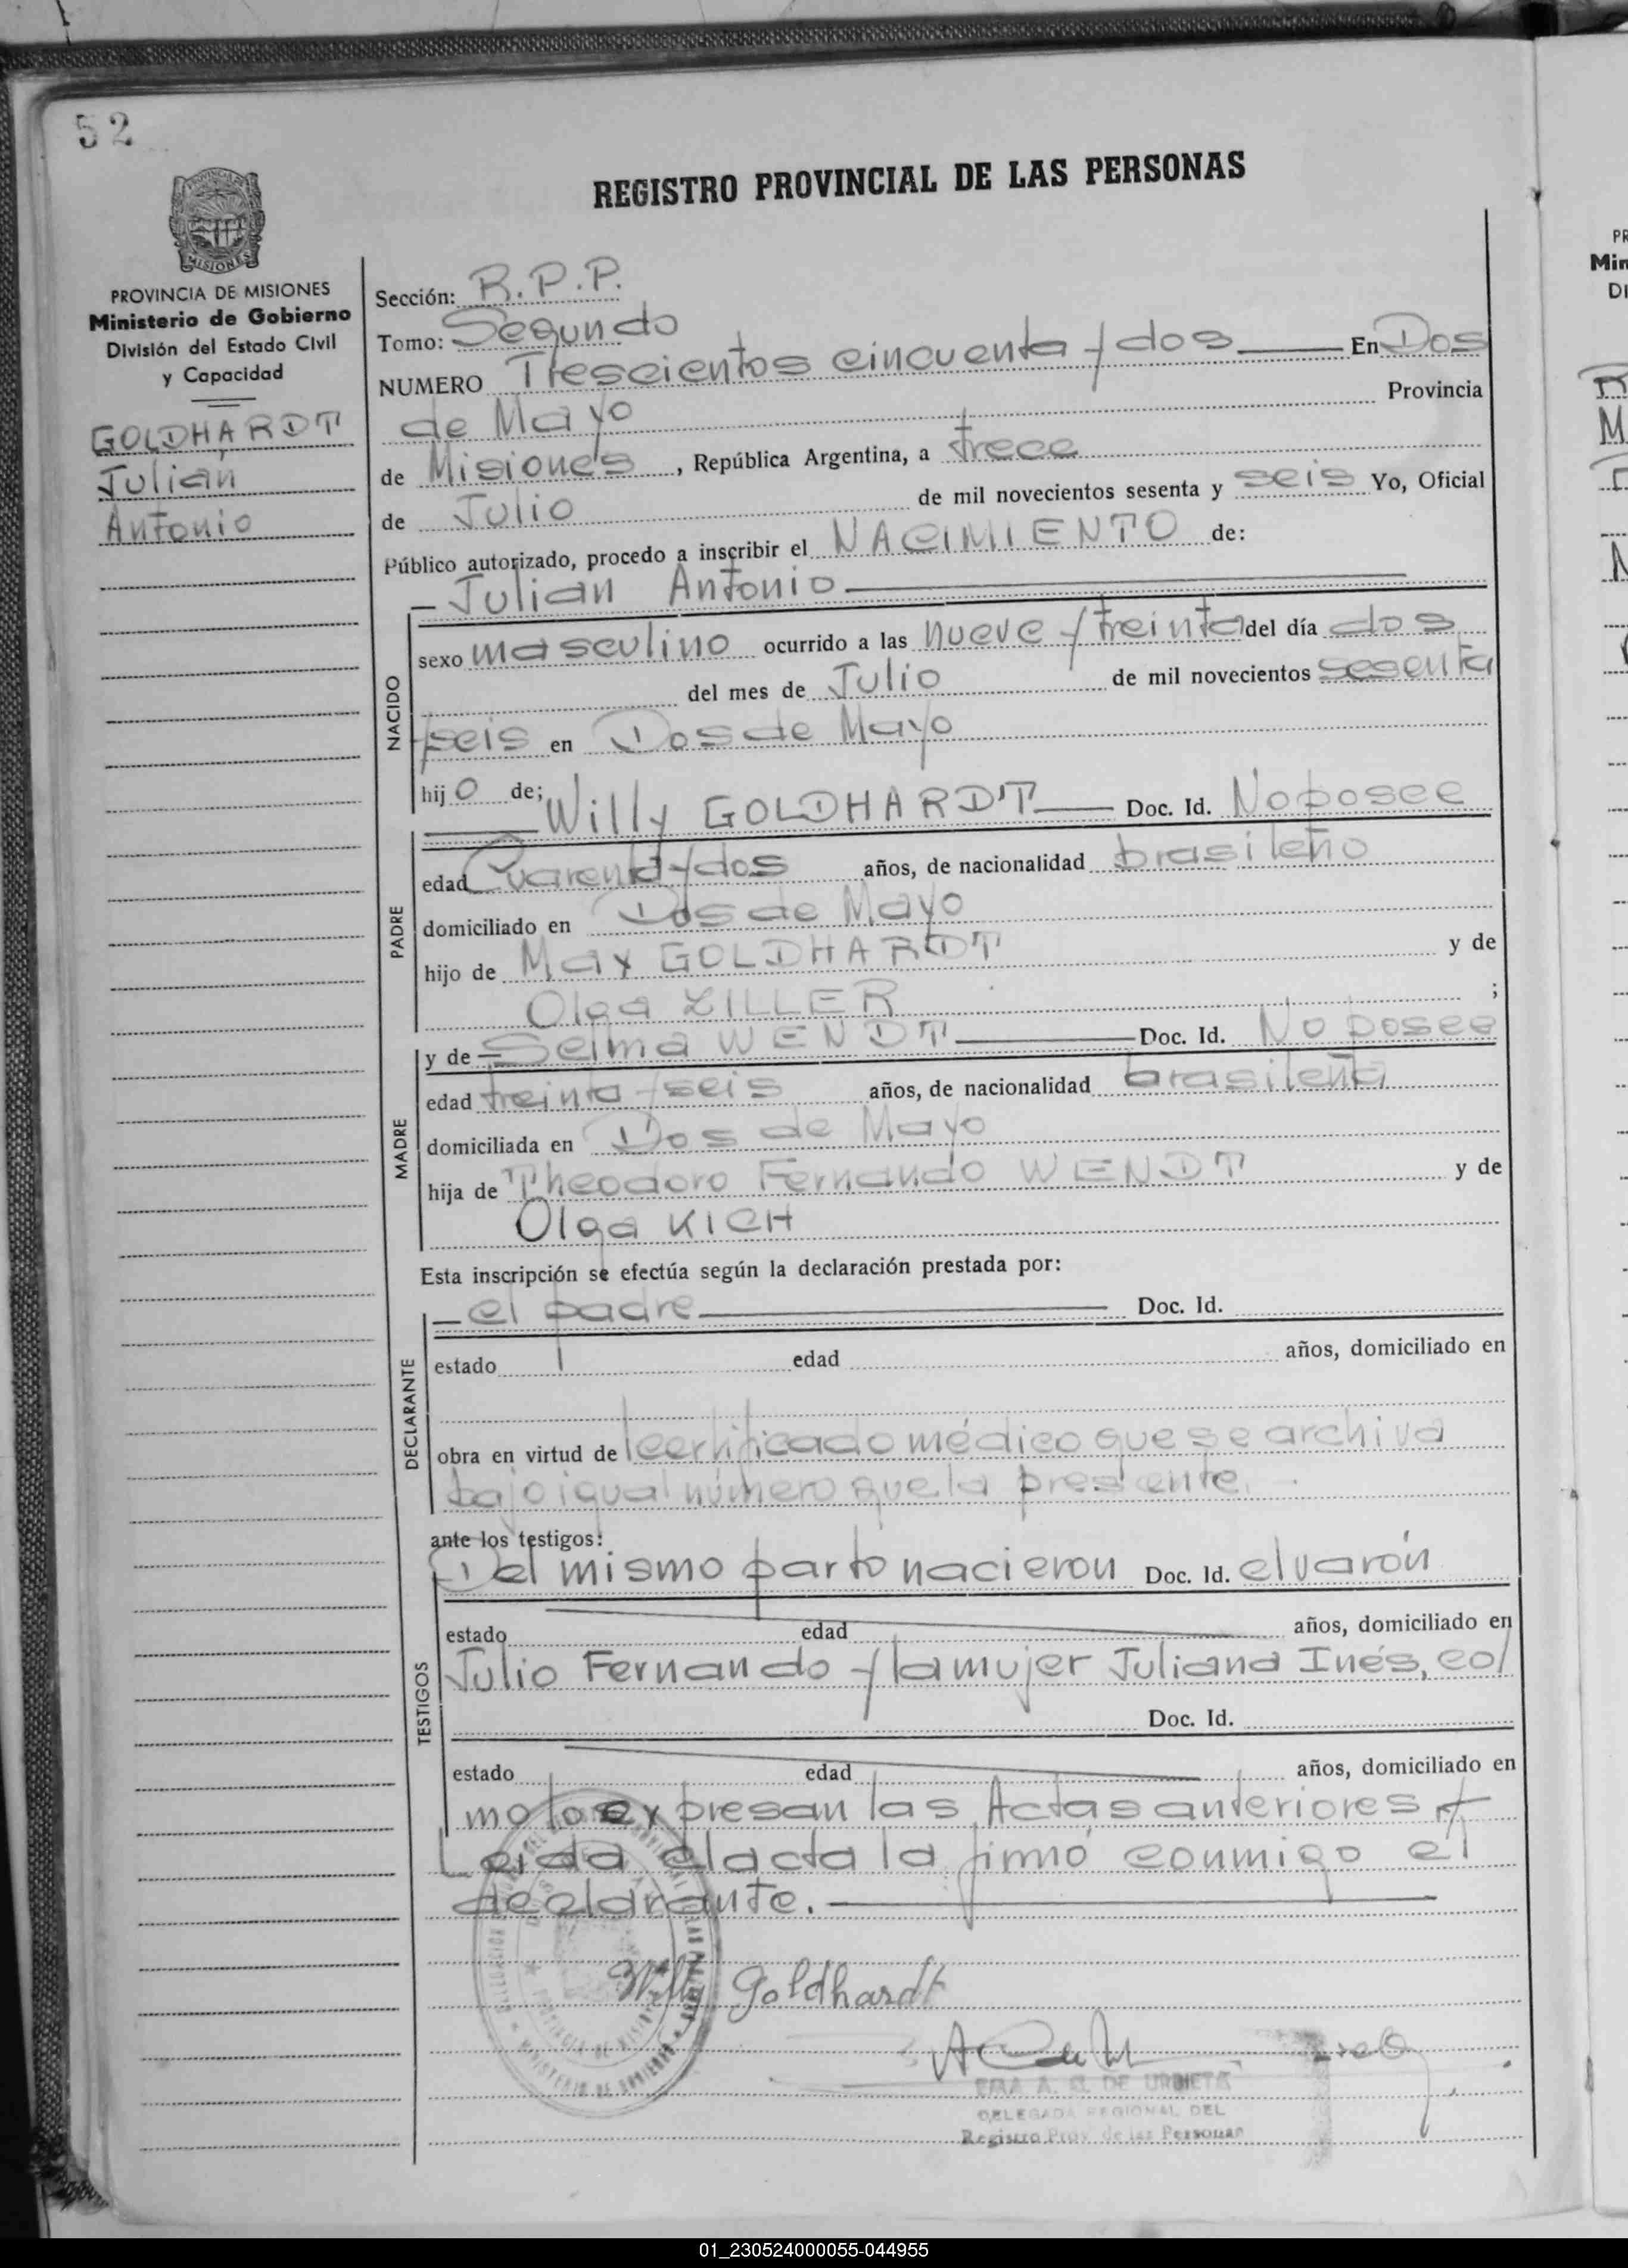 52
REGISTRO PROVINCIAL DE LAS PERSONAS
MISIONES
PROVINCIA DE MISIONES
Ministerio de Gobierno
División del Estado Civil
y Capacidad
GOLDHARDT
Julián
Antonio
Sección: R.P.P.
Tomo: Segundo
NUMERO Trescientos cincuenta y dos En Dos
de Mayo Provincia
de Misiones, República Argentina, a trece
de Julio de mil novecientos sesenta y seis Yo, Oficial
Público autorizado, procedo a inscribir el NACIMIENTO de:
Julian Antonio
NACIDO
sexo masculino ocurrido a las nueve y treinta del día dos
del mes de Julio de mil novecientos sesenta
y seis en Dos de Mayo
hijo de; Willy GOLDHARDT Doc. Id. No posee
PADRE
edad Cuarenta y dos años, de nacionalidad brasileño
domiciliado en Dos de Mayo
hijo de Max GOLDHARDT y de
Olga ZILLER ;
y de Selma WENDT Doc. Id. No posee
MADRE
edad treinta y seis años, de nacionalidad brasileña
domiciliada en Dos de Mayo
hija de Theodoro Fernando WENDT y de
Olga KICH
Esta inscripción se efectúa según la declaración prestada por:
el padre Doc. Id.
DECLARANTE
estado edad años, domiciliado en
obra en virtud de certificado médico que se archiva
bajo igual número que la presente.
ante los testigos:
Del mismo parto nacieron Doc. Id. el varón
TESTIGOS
estado edad años, domiciliado en
Julio Fernando y la mujer Juliana Inés, co/
Doc. Id.
estado edad años, domiciliado en
mo lo expresan las Actas anteriores y
Leida el acta la firmó conmigo el
declarante.
Willy Goldhardt
A. G. DE URBIETA
DELEGADA REGIONAL DEL
Registro Prov. de las Personas
01_230524000055-044955